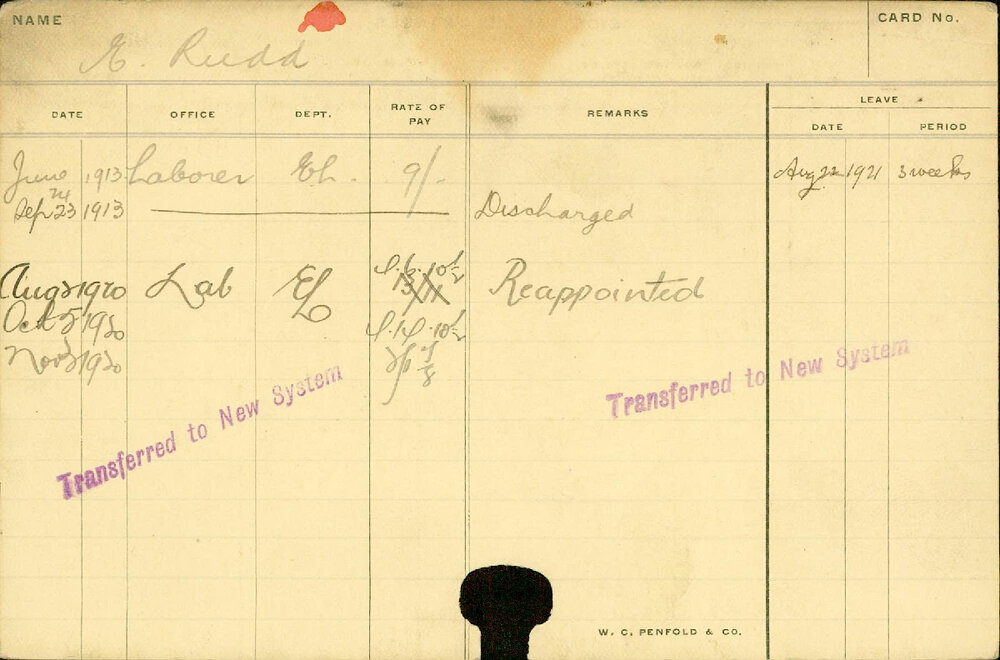 NAME
CARD No.
E. Rudd
DATE OFFICE DEPT. RATE OF PAY REMARKS LEAVE
DATE PERIOD
June 24 1913 Laborer EL. 9/- Aug 22 1921 3 weeks
Sep 23 1913 Discharged
Aug 2 1920 Lab EL Reappointed
Oct 5 1920
Nov 2 1920
Transferred to New System
Transferred to New System
W. C. PENFOLD & CO.